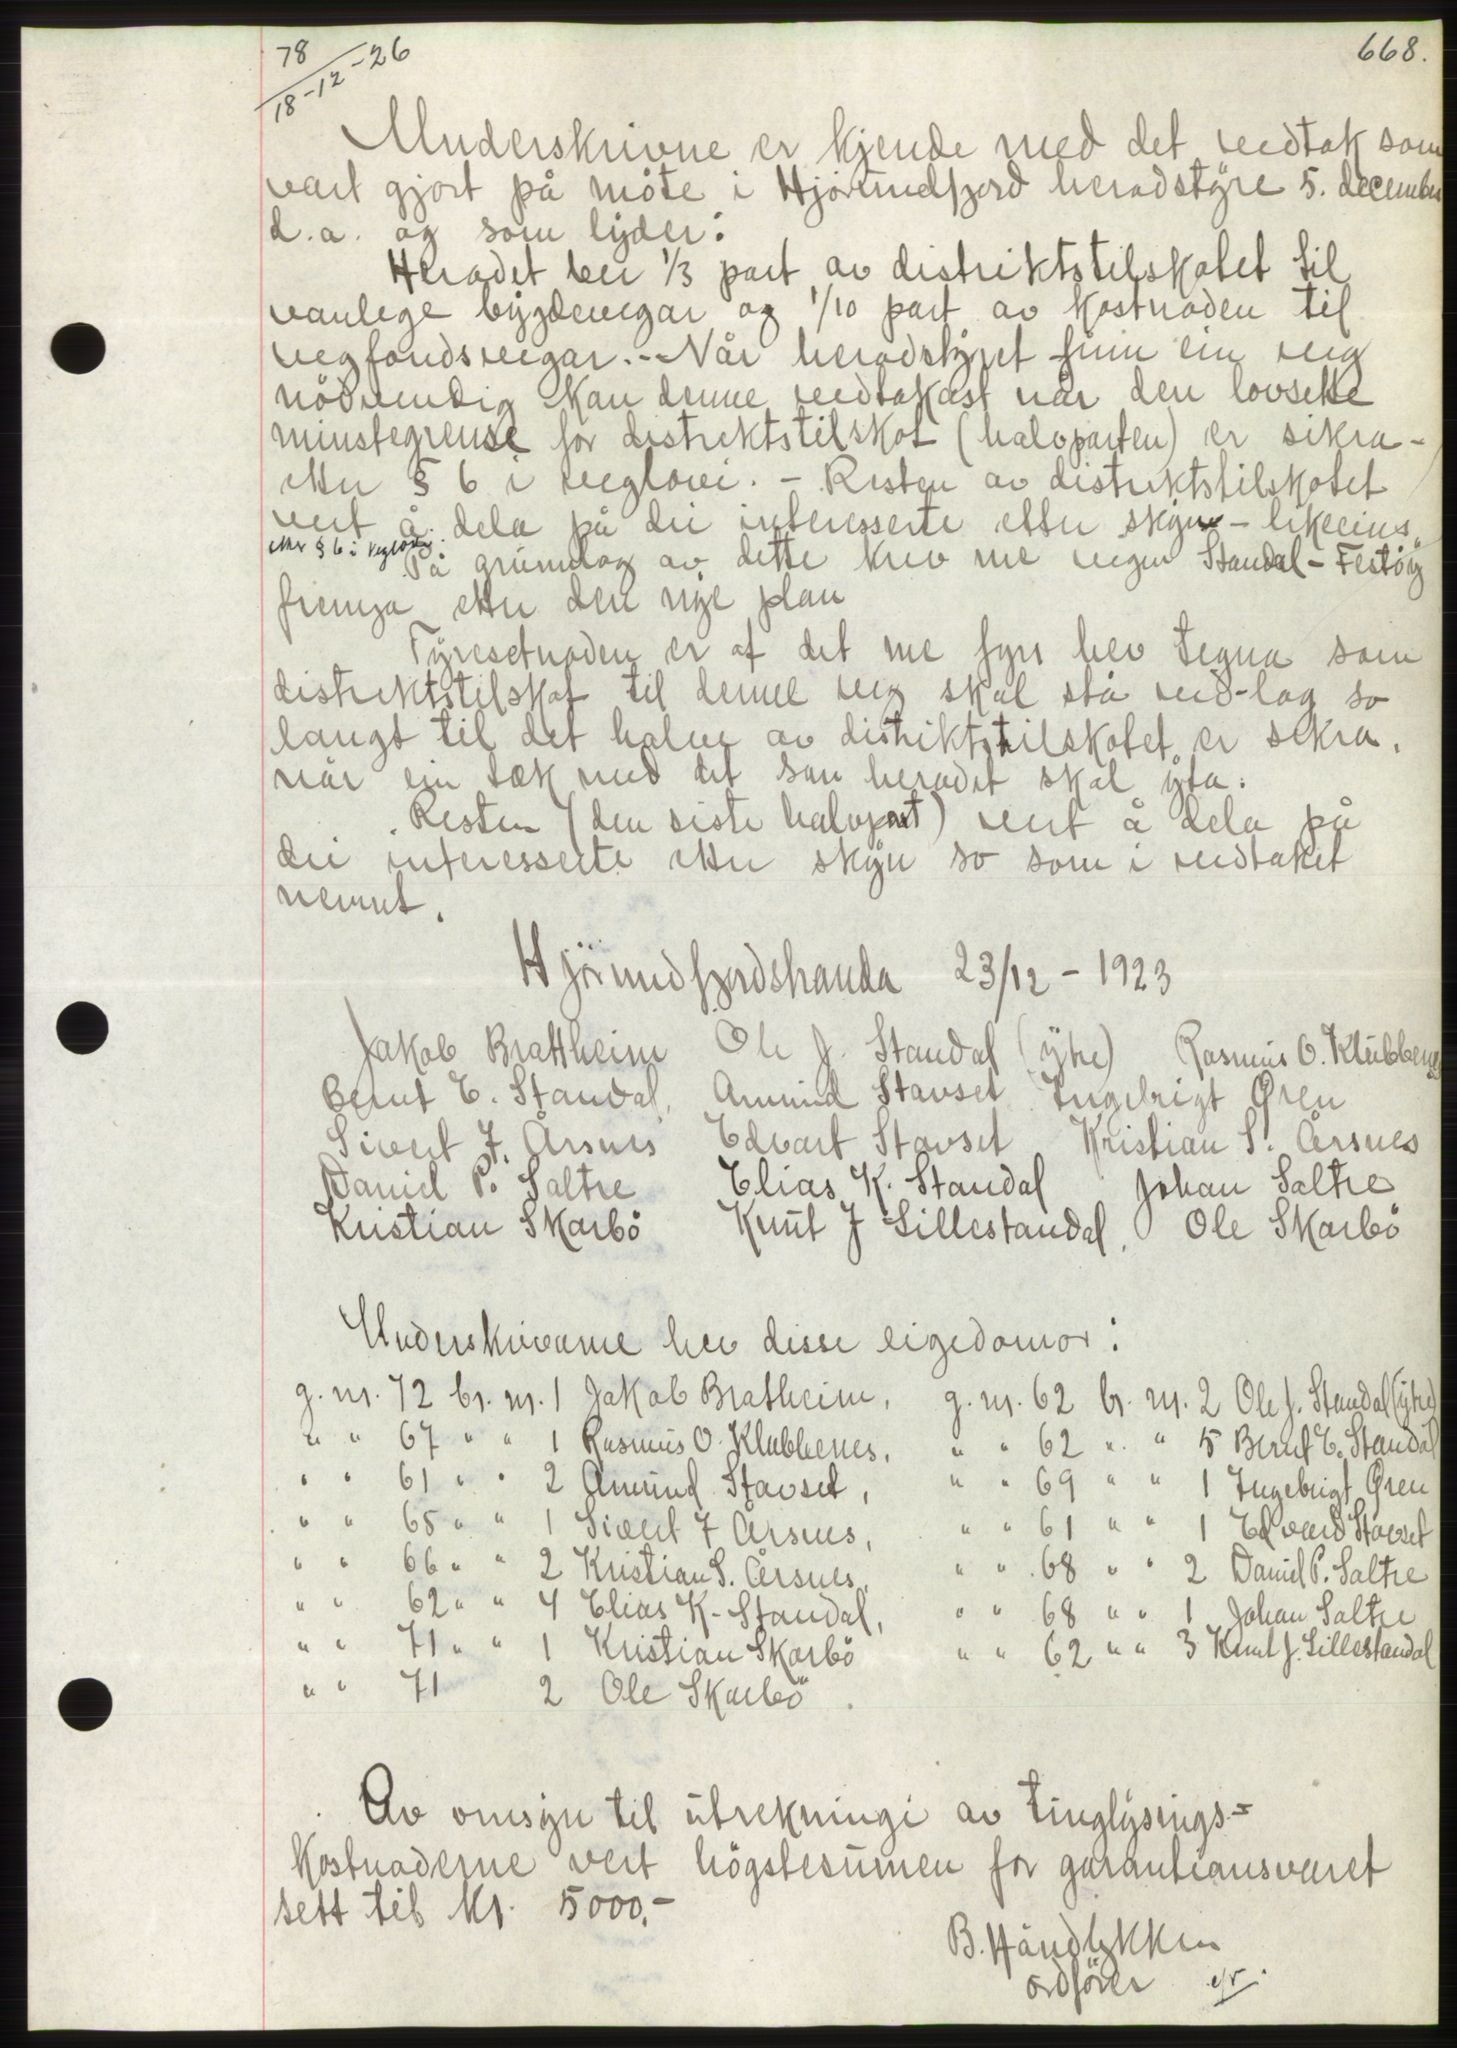 78
18-12-26
668.
Underskrivne er kjende med det vedtak som
vart gjort på möte i Hjörundfjord heradstyre 5. december
d.a. og som lyder:
Heradet ber 1/3 part av distriktstilskotet til
vanlege bygdevegar og 1/10 part av kostnaden til
vegfondsvegar. - Når heradstyret finn ein veg
nödvendig kan denne vedtakast når den lovsette
minstegrense for distriktstilskot (halvparten) er sikra -
etter § 6 i veglovi. - Resten av distriktstilskotet
vert å dela på dei interesserte etter skyn - likeeins
etter § 6 i veglovi.
På grunnlag av dette krev me vegen Standal - Festöy
fremja etter den nye plan
Fyresetnaden er at det me fyrr hev tegna som
distriktstilskot til denne veg skal stå ved-lag so
langt til det halve av distriktstilskotet er sikra,
når ein tek med det som heradet skal yta.
Resten (den siste halvpart) vert å dela på
dei interesserte etter skyn so som i vedtaket
nevnt.
Hjörundfjordstranda 23/12 - 1923
Jakob Brattheim Ole J. Standal (ytre) Rasmus O. Klubbenes
Bernt E. Standal, Amund Stavset Ingebrigt Øren
Sivert F. Årsnes Edvart Stavset Kristian S. Årsnes
Daniel P. Saltre Elias K. Standal Johan Saltre
Kristian Skarbö Knut J Lillestandal, Ole Skarbö
Underskrivarne hev disse eigedomar:
g. nr. 72 br. nr. 1 Jakob Bratheim, g. nr. 62 br. nr. 2 Ole J. Standal (ytre)
" " 67 " " 1 Rasmus O. Klubbenes, " " 62 " " 5 Bernt E. Standal
" " 61 " " 2 Amund Stavset, " " 69 " " 1 Ingebrigt Øren
" " 65 " " 1 Sivert F Årsnes, " " 61 " " 1 Edvard Stavset
" " 66 " " 2 Kristian S. Årsnes, " " 68 " " 2 Daniel P. Saltre
" " 62 " " 4 Elias K. Standal, " " 68 " " 1 Johan Saltre
" " 71 " " 1 Kristian Skarbö " " 62 " " 3 Knut J. Lillestandal
" " 71 2 Ole Skarbö.
Av omsyn til utrekningi av tinglysings-
kostnaderne vert högstesumen for garantiansvaret
sett til Kr. 5000.-
B. Håndlykken
ordförer